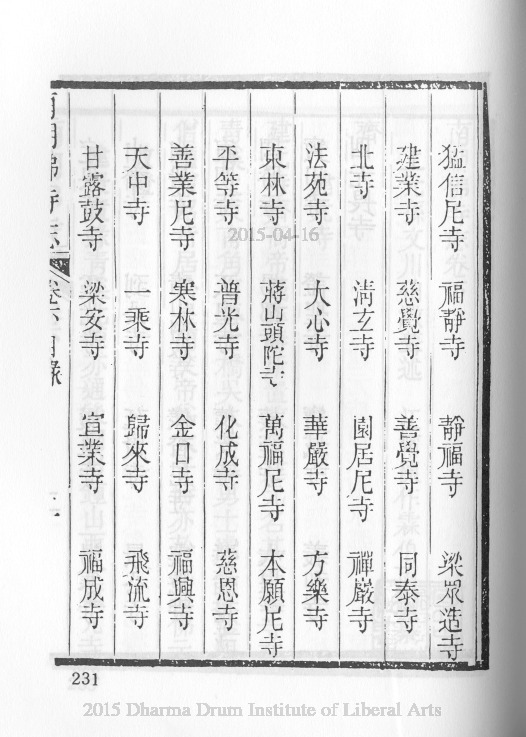 猛信尼寺 福靜寺 靜福寺 梁眾造寺
建業寺 慈覺寺 善覺寺 同泰寺
北寺 清玄寺 園居尼寺 禪巖寺
法苑寺 大心寺 華嚴寺 方樂寺
東林寺 蔣山頭陀寺 萬福尼寺 本願尼寺
平等寺 普光寺 化成寺 慈恩寺
善業尼寺 寒林寺 金口寺 福興寺
天中寺 一乘寺 歸來寺 飛流寺
甘露鼓寺 梁安寺 宣業寺 福成寺
寺志 卷下目錄
231
2015-04-16
2015 Dharma Drum Institute of Liberal Arts